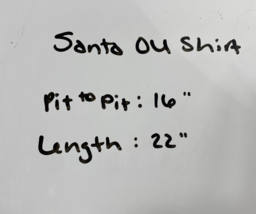 Santa OU Shirt
Pit to Pit: 16"
Length: 22"